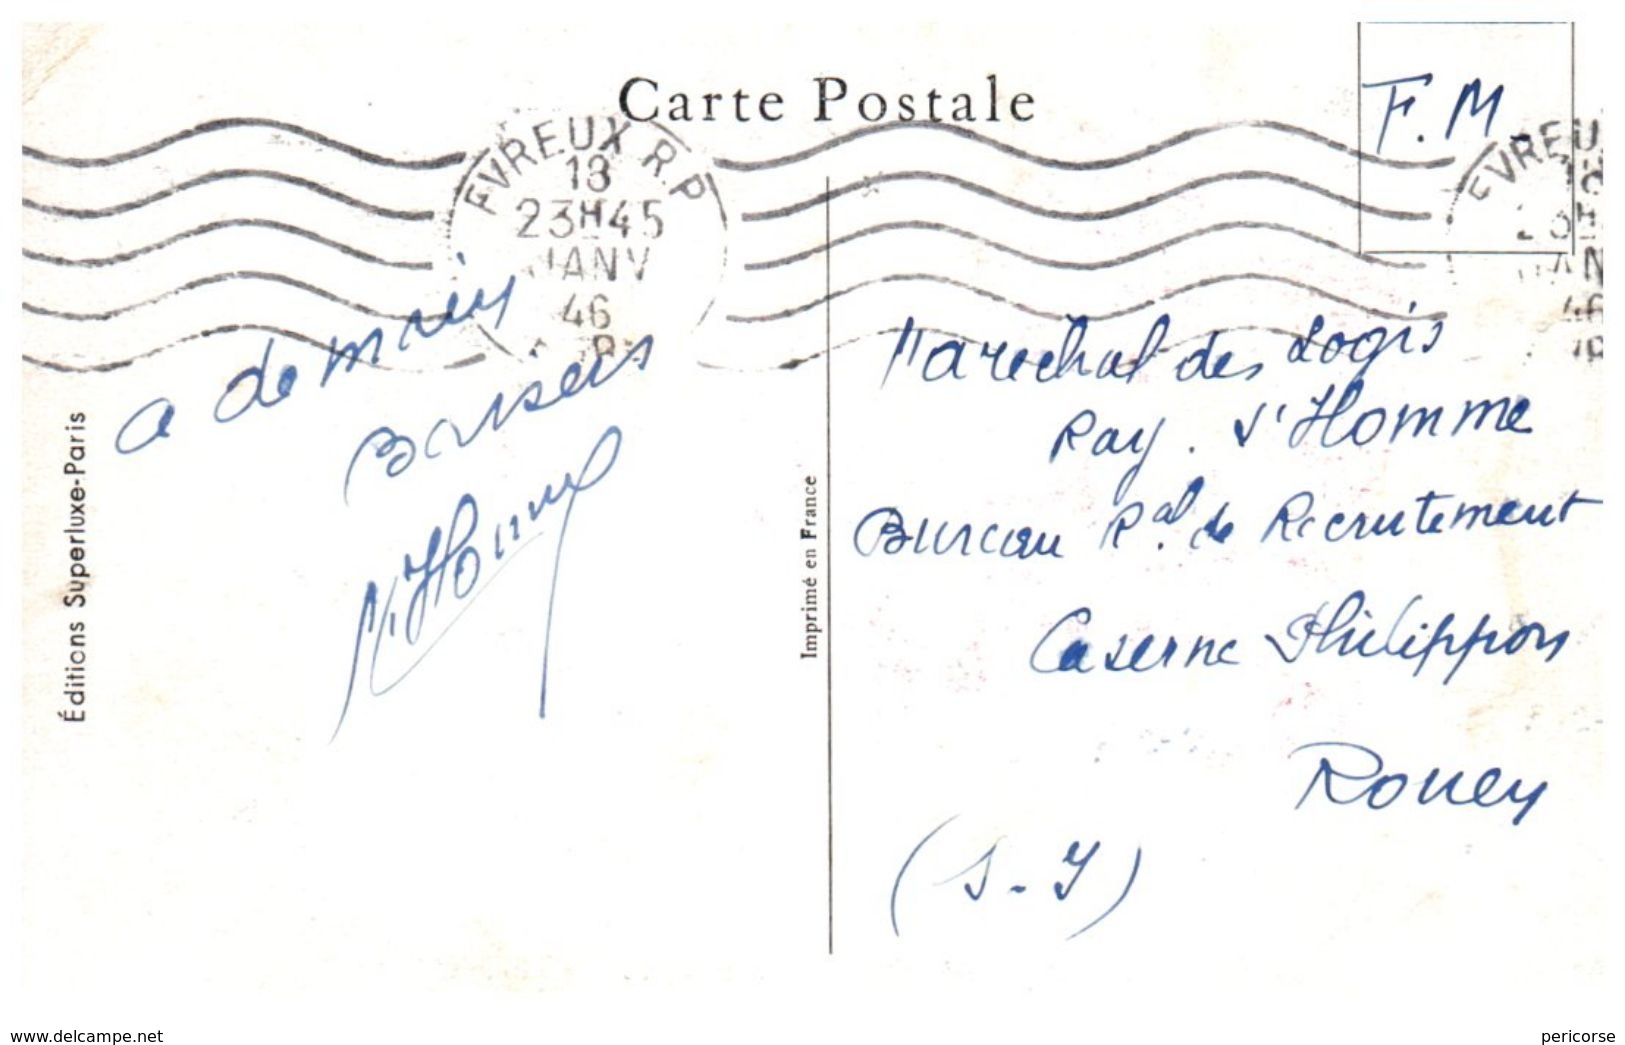 Carte Postale
F.M.
EVREUX R.P
18
23H45
JANV
46
EVREU
18
46
a demain
Baisers
M. Homme
Marechal des Logis
Ray. L'Homme
Bureau Ral. de Recrutement
Caserne Philippon
Rouen
(S-I)
Éditions Superluxe-Paris
Imprimé en France
www.delcampe.net
pericorse